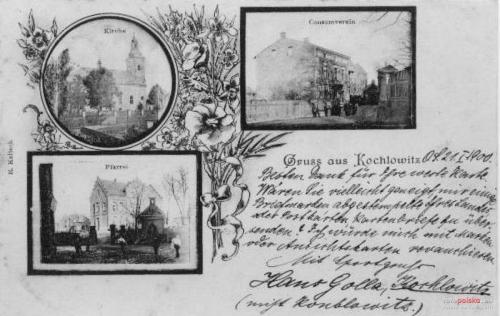 Kirche
Consumverein
E. Kulbeck
Pfarrei
Gruss aus Kochlowitz 21.I.1900.
Besten Dank für Ihre werte Karte.
Wären Sie vielleicht geneigt mir einige
Briefmarken abgestempelte
oder Postkarten Kartenbriefe zu über-
senden? Ich würde mich mit Marken
oder Ansichtskarten revanchieren
Mit Sportgruß
Hans Golla, Kochlowitz
(nicht Konblowitz.)
polska